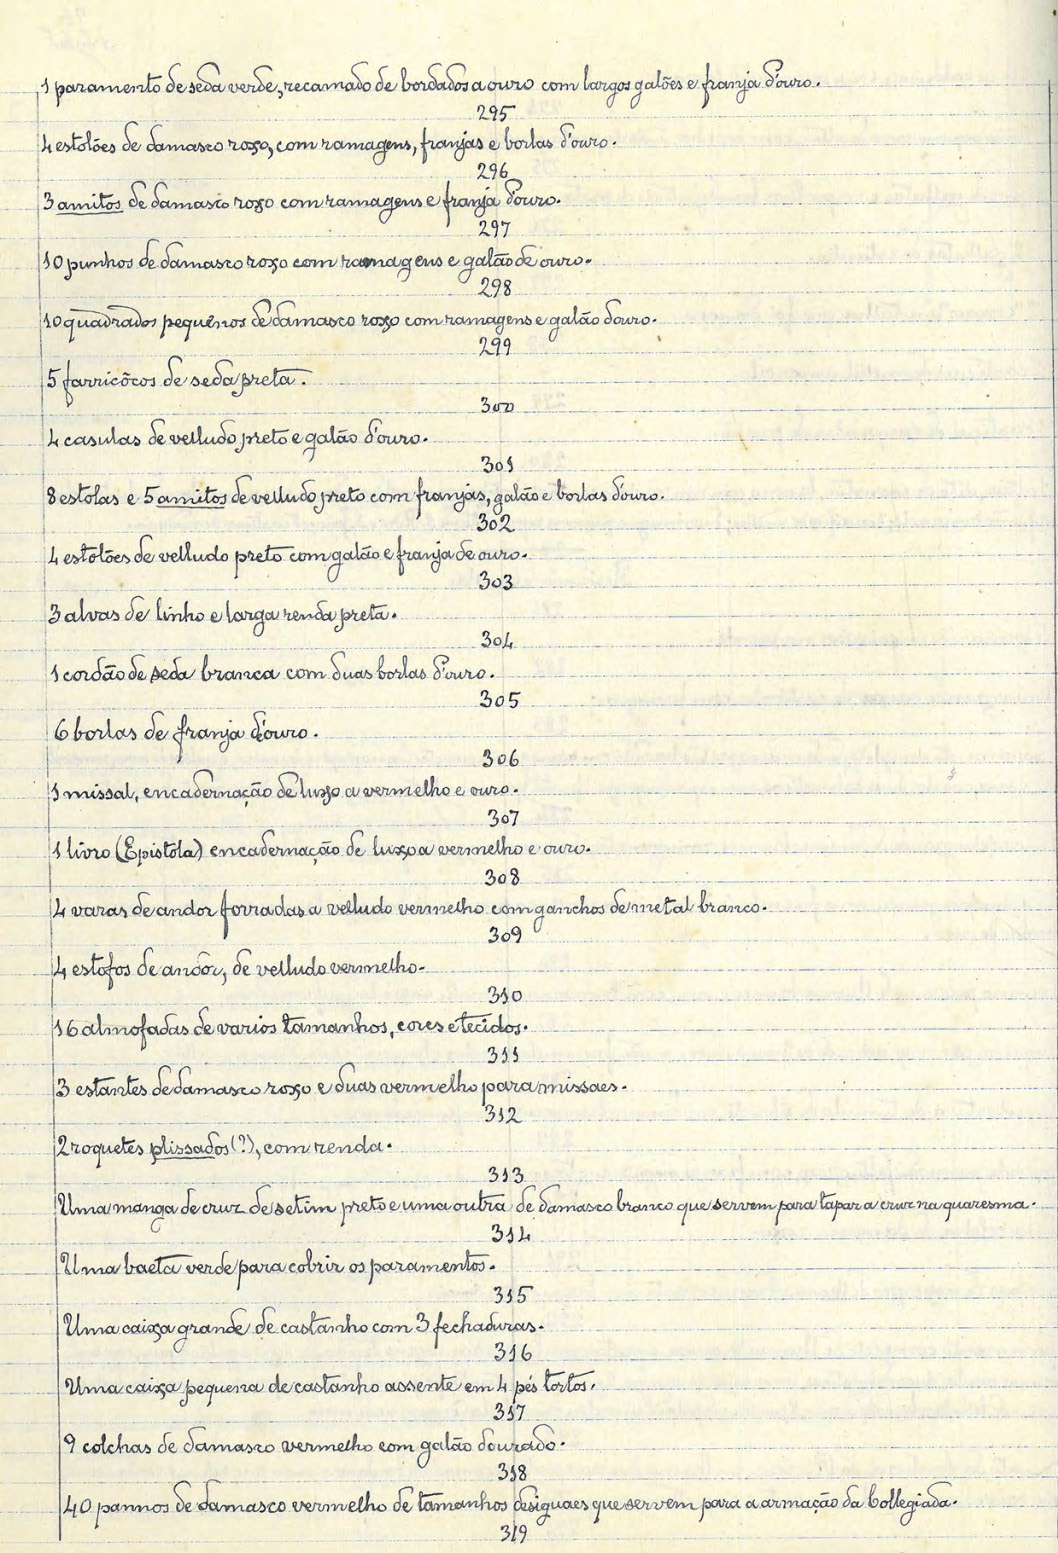 1 paramento de seda verde, recamado de bordados a ouro com largos galões e franja d'ouro.
295
4 estolões de damasco roxo, com ramagens, franjas e borlas d'ouro.
296
3 amitos de damasco roxo com ramagens e franja d'ouro.
297
10 punhos de damasco roxo com ramagens e galão de ouro.
298
10 quadrados pequenos de damasco roxo com ramagens e galão d'ouro.
299
5 farricôcos de seda preta.
300
4 casulas de velludo preto e galão d'ouro.
301
8 estolas e 5 amitos de velludo preto com franjas, galão e borlas d'ouro.
302
4 estolões de velludo preto com galão e franja de ouro.
303
3 alvas de linho e larga renda preta.
304
1 cordão de seda branca com duas borlas d'ouro.
305
6 borlas de franja d'ouro.
306
1 missal, encadernação de luxo a vermelho e ouro.
307
1 livro (Epistola) encadernação de luxo a vermelho e ouro.
308
4 varas de andor forradas a velludo vermelho com ganchos de metal branco.
309
4 estofos de andor, de velludo vermelho.
310
16 almofadas de varios tamanhos, cores e tecidos.
311
3 estantes de damasco roxo e duas vermelho para missaes.
312
2 roquetes plissados (?), com renda.
313
Uma manga de cruz de setim preto e uma outra de damasco branco que servem para tapar a cruz na quaresma.
314
Uma baeta verde para cobrir os paramentos.
315
Uma caixa grande de castanho com 3 fechaduras.
316
Uma caixa pequena de castanho assente em 4 pés tortos.
317
9 colchas de damasco vermelho com galão dourado.
318
40 pannos de damasco vermelho de tamanhos desiguaes que servem para a armação da Collegiada.
319